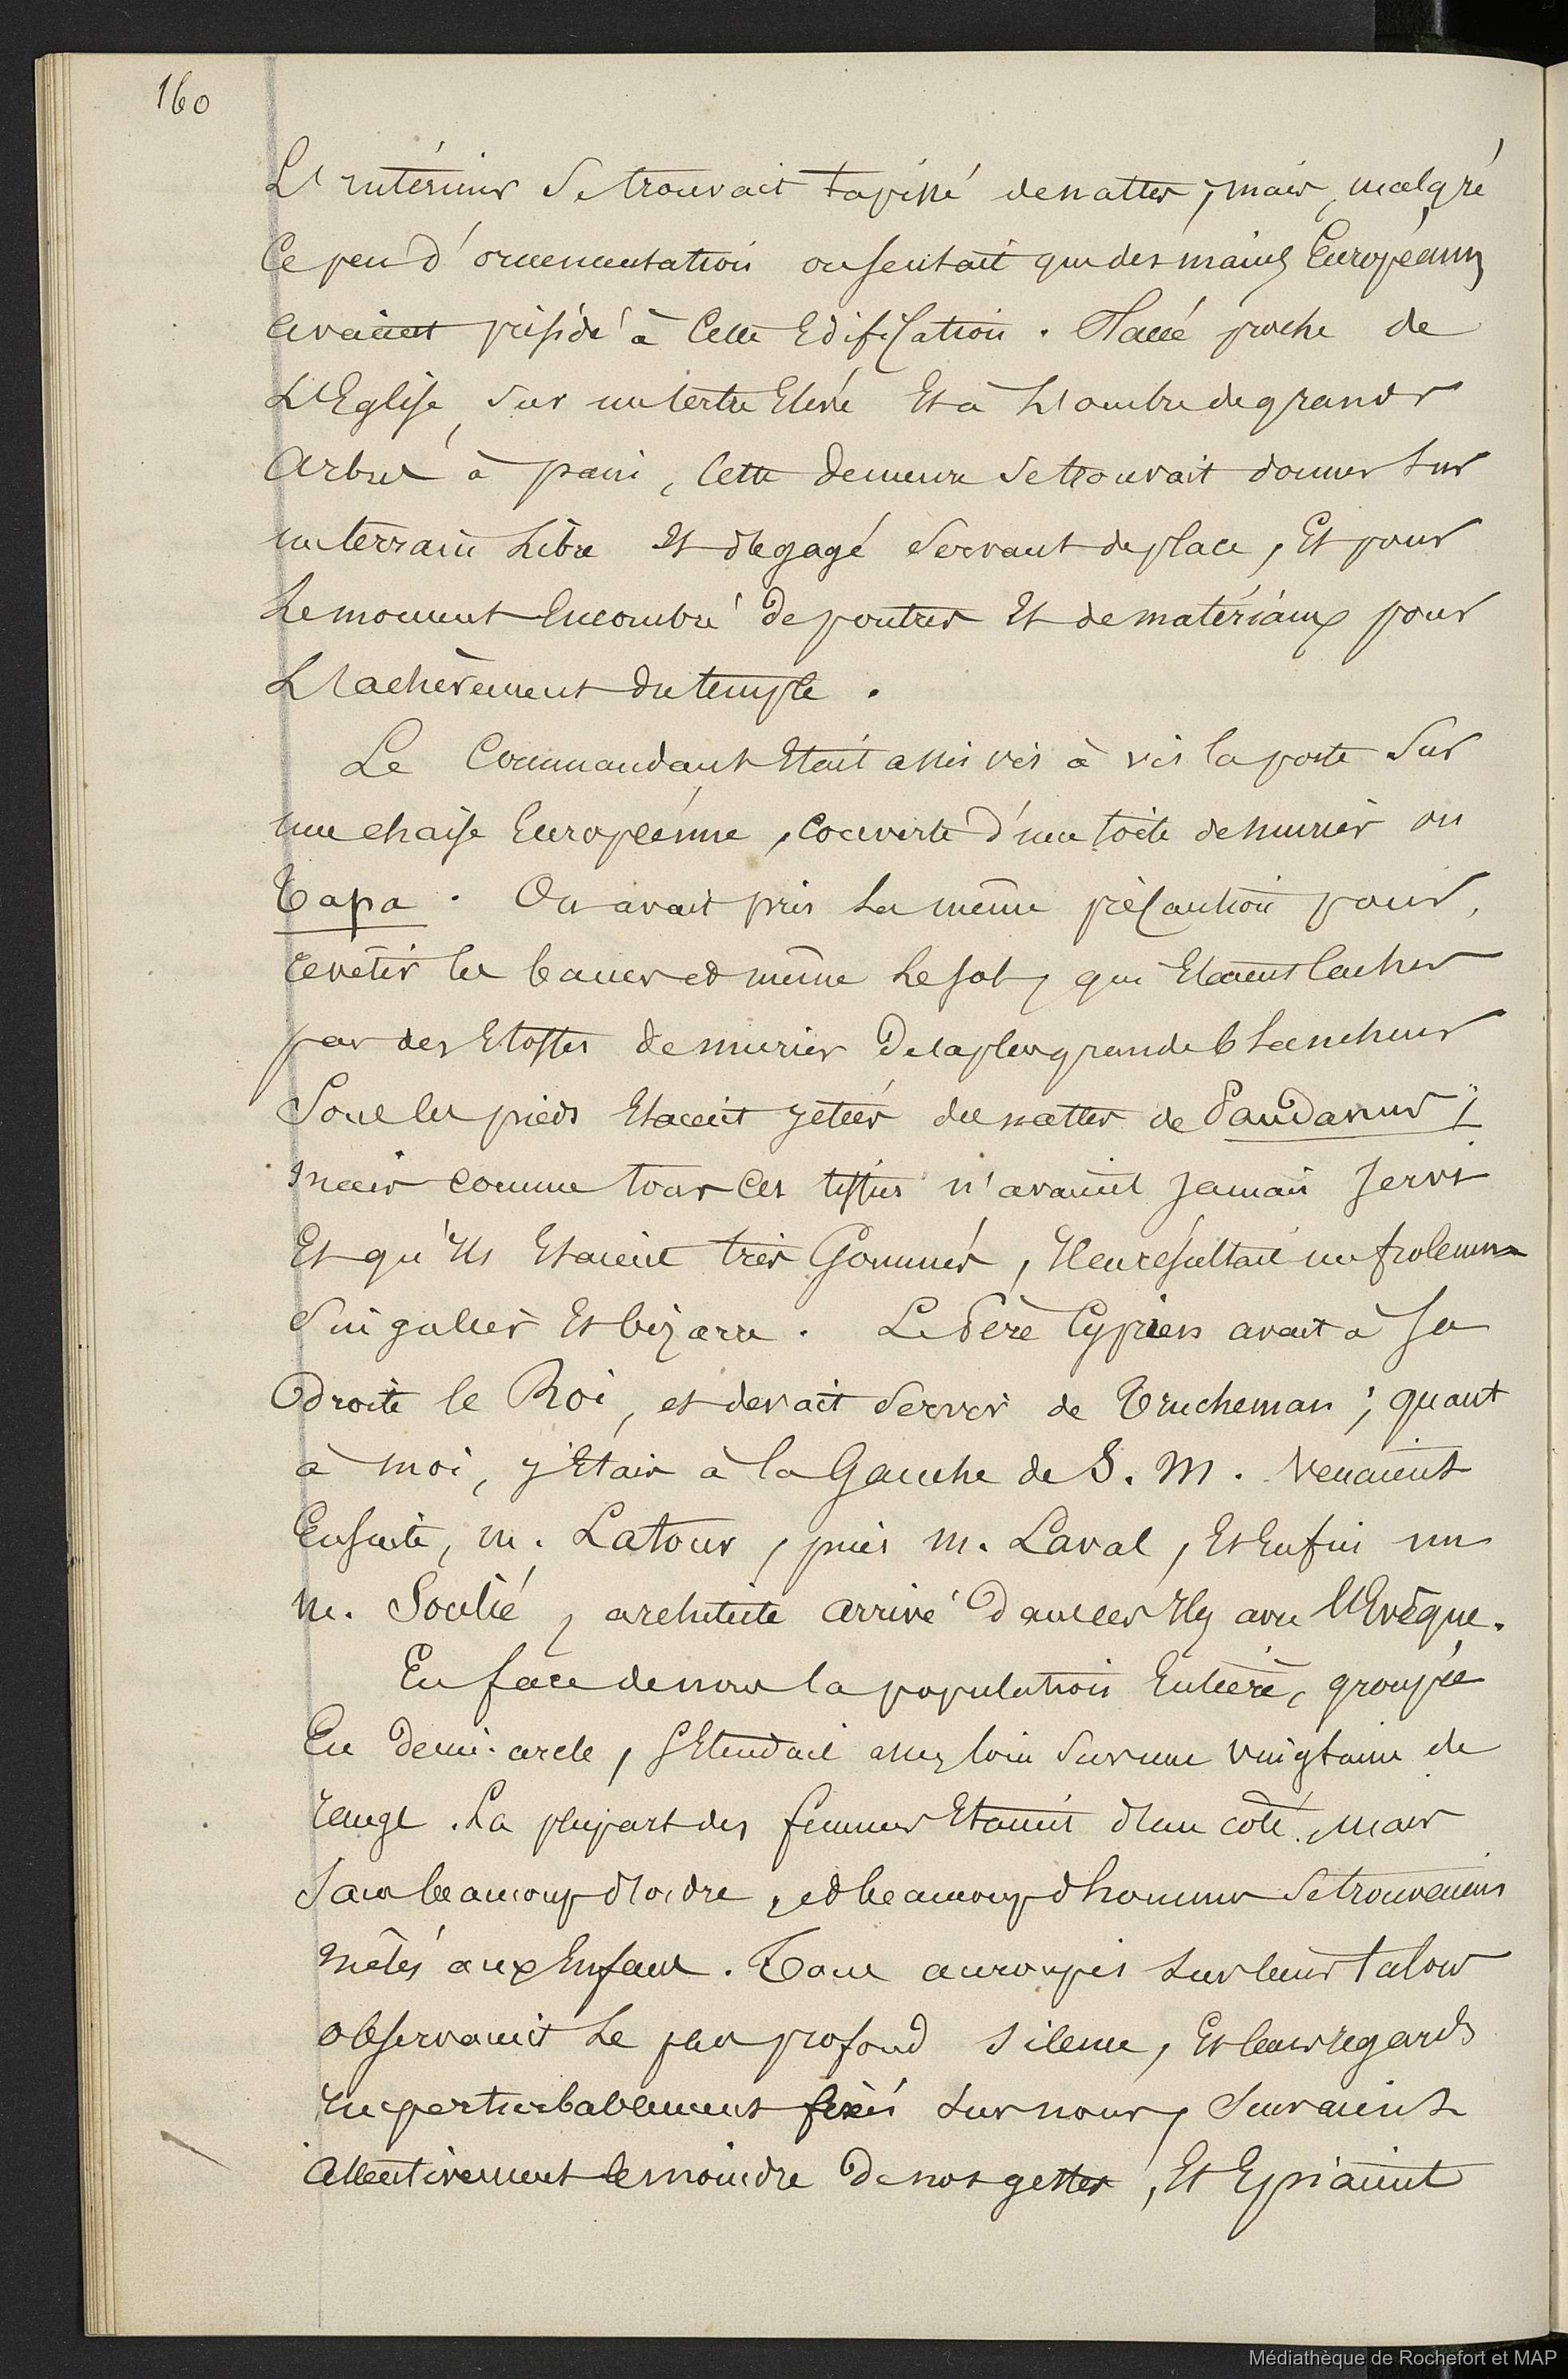 160
L'intérieur se trouvait tapissé de nattes, mais, malgré
ce peu d'ornementation on sentait que des mains Européennes
avaient présidé à cette Edification. Placé proche de
L'Eglise, sur un tertre Elevé Et à L'ombre de grands
arbres à pain, cette demeure se trouvait donner sur
un terrain Libre Et dégagé servant de place, Et pour
Le moment Encombré de poutres Et de matériaux pour
L'achèvement du temple.
Le Commandant Etait assis vis à vis la porte sur
une chaise Européenne, couverte d'une toile de murier ou
Tapa. On avait pris La même précaution pour,
revêtir les bancs et même Le sol, qui Etaient cachés
par des Etoffes de murier de la plus grande blancheur
Sous les pieds Etaient jetées des nattes de Pandanus ;
mais comme tous ces tissus n'avaient jamais servi
Et qu'Ils Etaient très Gommés, Il en résultait un frolement
singulier Et bizarre. Le Père Cyprien avait à sa
droite le Roi, et devait servir de Trucheman ; quant
à moi, j'Etais à la Gauche de S. M. Venaient
Ensuite, m. Latour, puis m. Laval, Et Enfin un
m. Soulié, architecte arrivé dans ces Ils avec l'Evêque.
En face de nous la population Entière, groupée
En demi-cercle, s'Etendait assez loin sur une vingtaine de
rangs. La plupart des femmes Etaient d'un coté, mais
sans beaucoup d'ordre, et beaucoup d'hommes se trouvaient
mêlés aux Enfans. Tous accroupis sur leurs talons
observaient Le plus profond silence, Et leurs regards
Imperturbablement fixés sur nous, suivaient
attentivement le moindre de nos gestes, Et Epiaient
Médiathèque de Rochefort et MAP